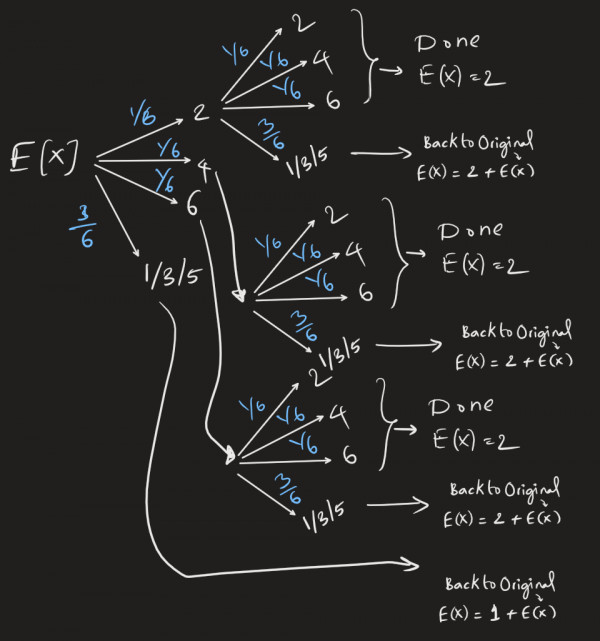 2
1/6
1/6
4
1/6
6
Done
E(x) = 2
3/6
1/3/5
Back to Original
E(x) = 2 + E(x)
E[x]
1/6
2
1/6
4
1/6
6
3/6
1/3/5
2
1/6
1/6
4
1/6
6
Done
E(x) = 2
3/6
1/3/5
Back to Original
E(x) = 2 + E(x)
2
1/6
1/6
4
1/6
6
Done
E(x) = 2
3/6
1/3/5
Back to Original
E(x) = 2 + E(x)
Back to Original
E(x) = 1 + E(x)